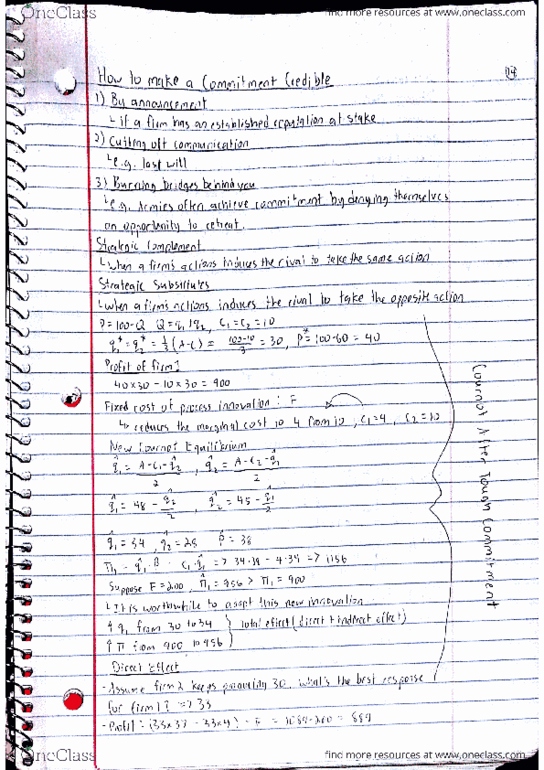 OneClass
find more resources at www.oneclass.com
How to make a Commitment Credible
1) By announcement
↳ if a firm has an established reputation at stake
2) Cutting off communication
↳ e.g. last will
3) Burning bridges behind you
↳ e.g. Armies often achieve commitment by denying themselves
an opportunity to retreat.
Strategic Complement
↳ when a firm's actions induces the rival to take the same action
Strategic Substitutes
↳ when a firm's actions induces the rival to take the opposite action
P=100-Q Q=q₁+q₂, C₁=C₂=10
q₁*=q₂*=⅓(A-C)= 100-10/3 = 30, P*=100-60=40
Profit of firm 1
40×30-10×30=900
Fixed cost of process innovation: F
↳ reduces the marginal cost to 4 from 10, C₁=4, C₂=10
New Cournot Equilibrium
q̂₁ = A-C₁-q̂₂/2, q̂₂ = A-C₂-q̂₁/2
q̂₁ = 48 - q̂₂/2 q̂₂ = 45 - q̂₁/2
q̂₁=34, q̂₂=28 P̂=38
π₁ = q̂₁·P̂ - C₁·q̂₁ => 34·38-4·34 => 1156
Suppose F=200, π̂₁=956 > π₁=900
↳ It is worthwhile to adopt this new innovation
↑q₁ from 30 to 34
↑π from 900 to 956
total effect (direct + indirect effect)
Direct Effect
- Assume firm 2 keeps producing 30, what's the best response
for firm 1? => 33
- Profit: (33×37-33×4) - F = 1089-200 = 889
Cournot After Tough Commitment
OneClass
find more resources at www.oneclass.com